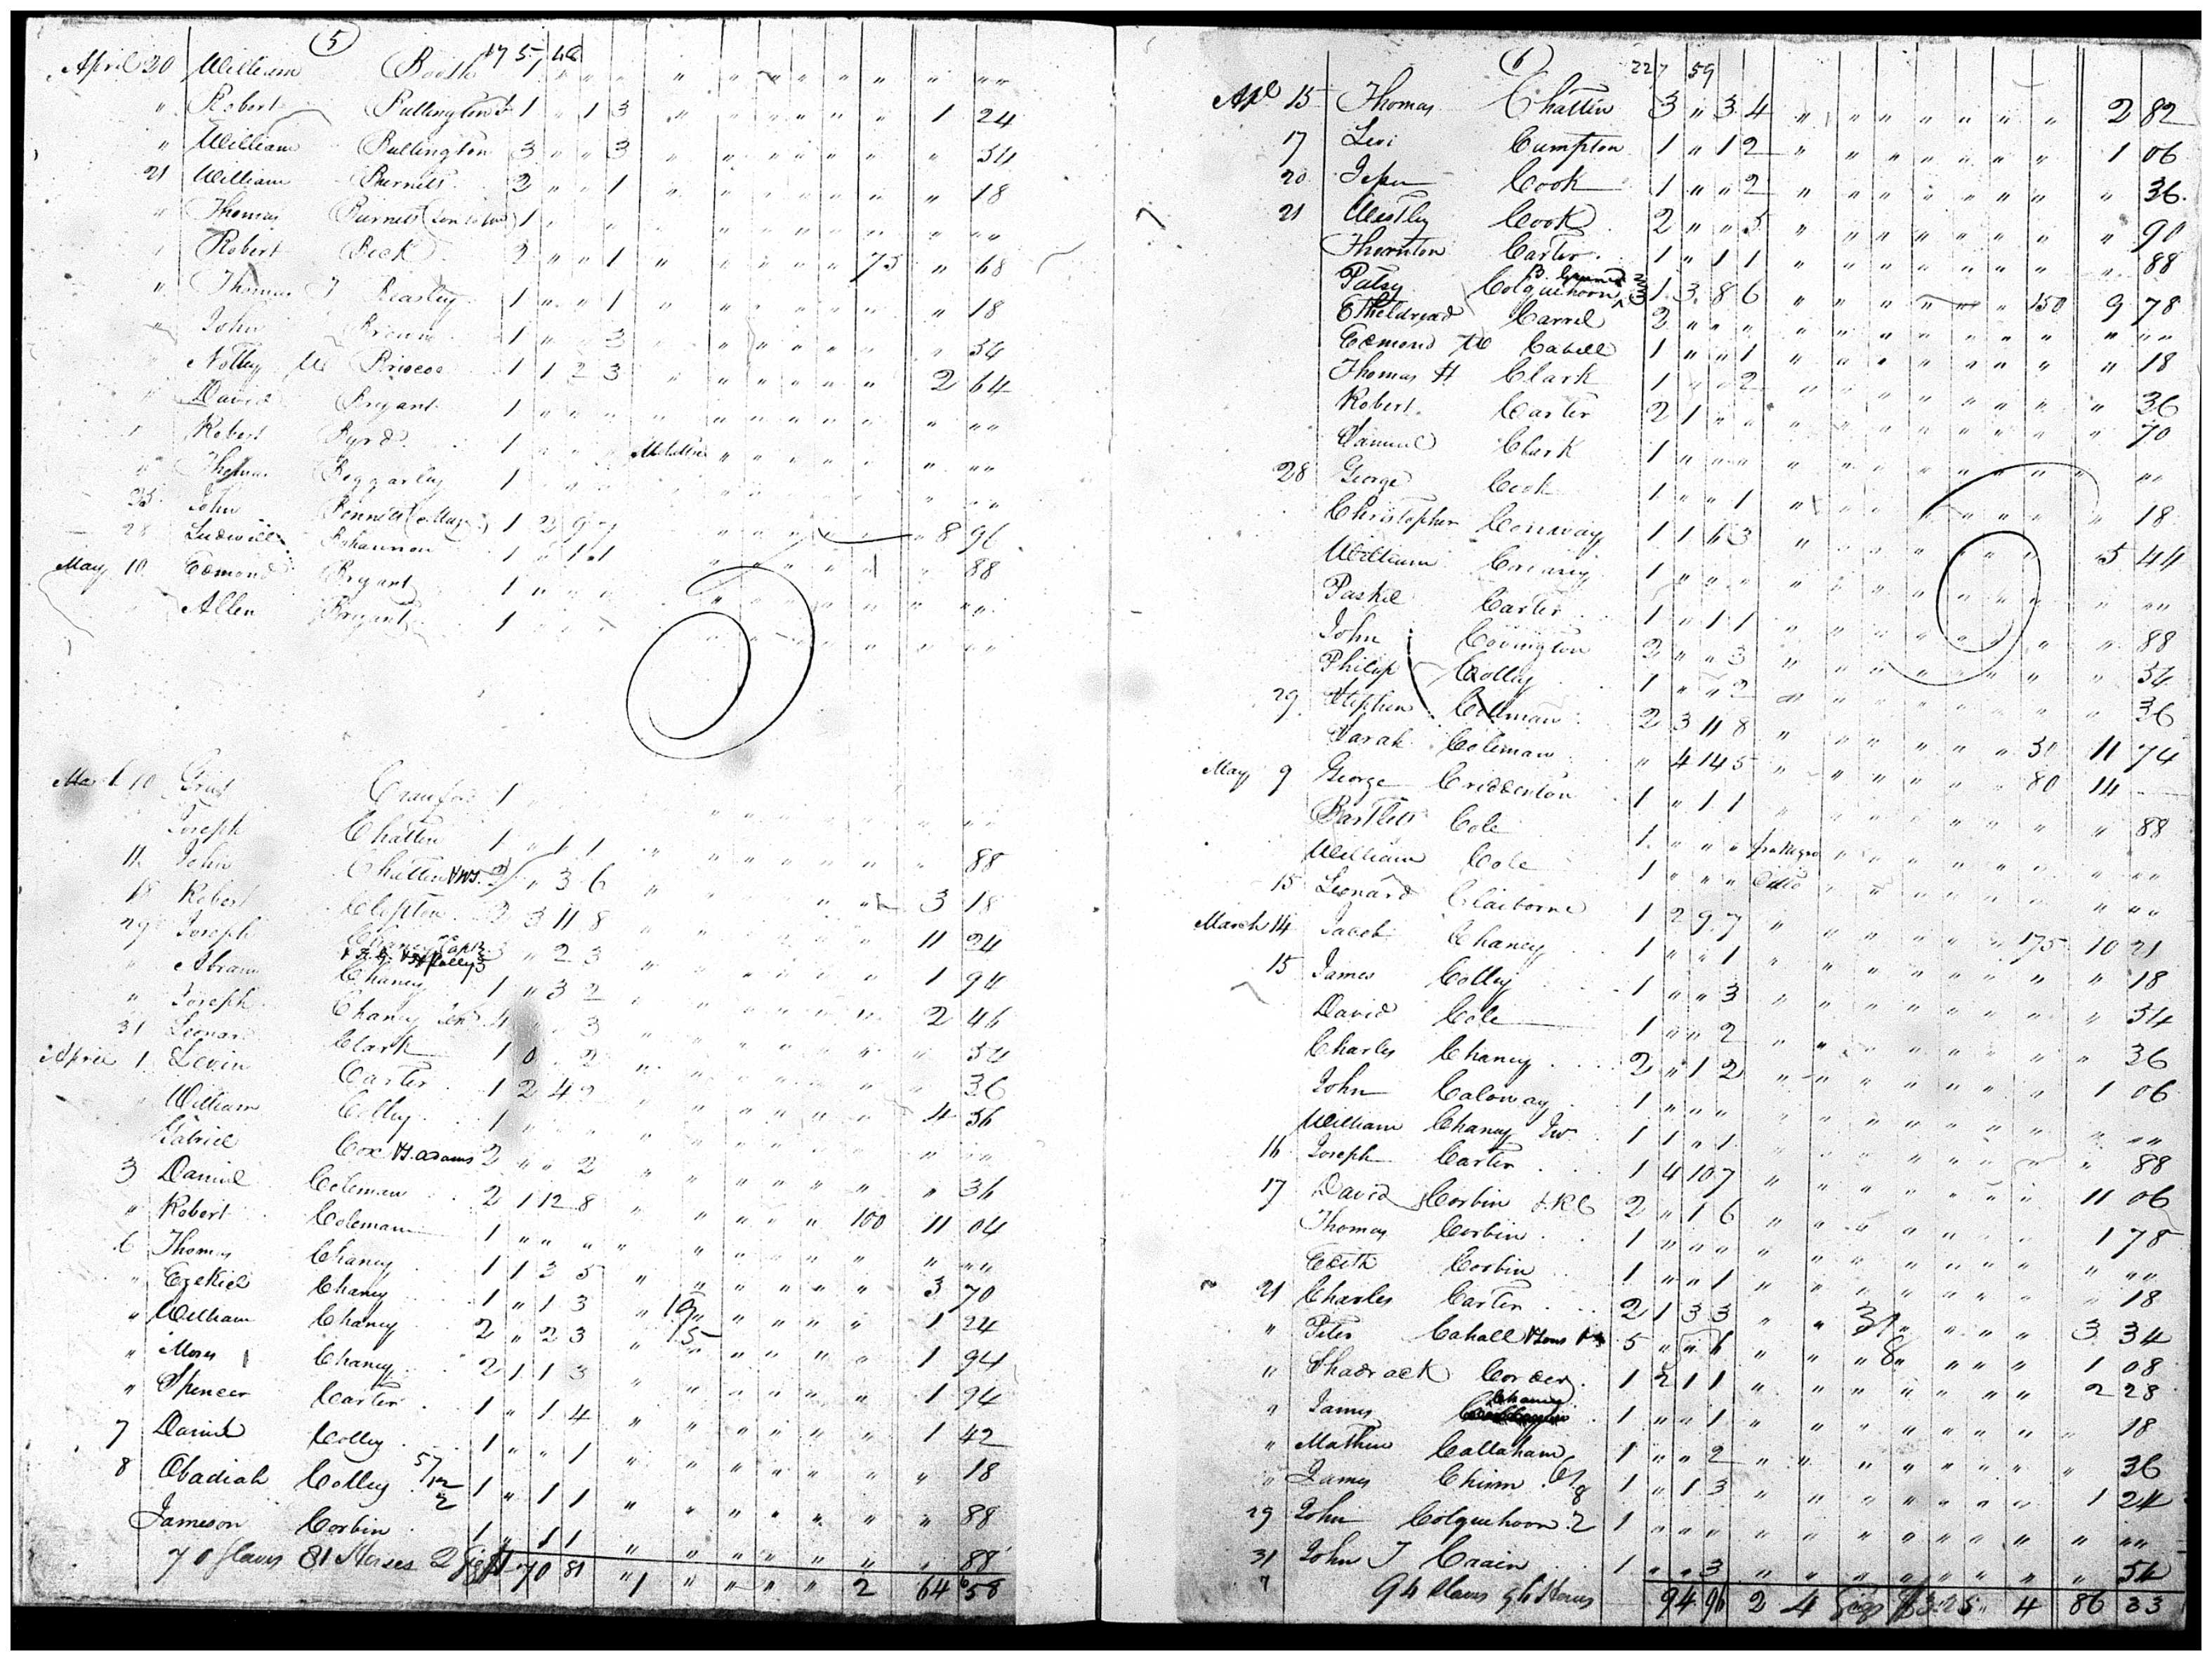 5
175 48
April 20 William Booth " " " " " " " " " " " "
" Robert Bullington 1 " 1 3 " " " " " " 1 24
" William Bullington 3 " " 3 " " " " " " " 54
21 William Burnett 2 " " 1 " " " " " " " 18
" Thomas Burnett 1 " " " " " " " " " " "
" Robert Beck 2 " " 1 " " " " " 75 " 68
" Thomas J Beasley 1 " " 1 " " " " " " " 18
" John Brown 1 " " 3 " " " " " " " 54
" Notley M Briscoe 1 1 2 3 " " " " " " 2 64
" David Bryant 1 " " " " " " " " " " "
" Robert Byrd 1 " " " Mulatto " " " " " " "
" Thomas Beggarley 1 " " " " " " "
25 John Bennett 1 2 9 7 " " " " 8 96
28 Ludwell Bohannon 1 " 1 1 " " " " " 88
May 10 Edmond Bryant 1 " " " " " " " " " "
Allen Bryant 1 " " " " " " " " "
10 Crauford 1 " " " " " " " "
Joseph Chatten 1 " 1 1 " " " " " " " 88
11 John Chatten " 3 6 " " " " 3 18
18 Robert Clopton 2 3 11 8 " " " " 11 24
29 Joseph Chaney 3 " 2 3 " " " " " 1 94
" Abram Chaney 1 " 3 2 " " " " " 2 46
" Joseph Chaney Sen 4 " " 3 " " " " " " 54
31 Leonard Clark 1 0 " 2 " " " " " " 36
April 1 Levin Carter 1 2 4 2 " " " " " 4 56
" William Colley 1 " " " " " " " " " "
Gabriel Cox & J. Adams 2 " " 2 " " " " " " " 36
3 Daniel Coleman 2 1 12 8 " " " " " 100 11 04
" Robert Coleman 1 " " " " " " " " " " "
6 Thomas Chaney 1 1 3 5 " " " " " " 3 70
" Ezekiel Chaney 1 " 1 3 " 19 " " " " 1 24
" William Chaney 2 " 2 3 " 15 " " " " 1 94
" Moses Chaney 2 1 1 3 " " " " " " 1 94
" Spencer Carter 1 " 1 4 " " " " " " 1 42
7 Daniel Colley 1 " " 1 " " " " " " " 18
8 Obadiah Colley 1 " 1 1 " " " " " " " 88
Jameson Corbin 1 " 1 1 " " " " " " " 88
70 slaves 81 Horses 2 Gigs 70 81 " 1 " " " " 2 64 58
6
227 59
Apl 15 Thomas Chattin 3 " 3 4 " " " " " " 2 82
17 Levi Cumpton 1 " 1 2 " " " " " " 1 06
20 Cook 1 " " 2 " " " " " " " 36
21 Westley Cook 2 " " 5 " " " " " " " 90
Thornton Carter 1 " 1 1 " " " " " " " 88
Patsy Colquehoon 1 3 8 6 " " " " " 150 9 78
Etheldread Carrel 2 " " " " " " " " " " "
Edmond Cabell 1 " " 1 " " " " " " " 18
Thomas H Clark 1 " " 2 " " " " " " " 36
Robert Carter 2 1 " " " " " " " " " 70
Samuel Clark 1 " " " " " " " " " " "
28 George Cook 1 " " 1 " " " " " " " 18
Christopher Conway 1 1 6 3 " " " " " " 5 44
William 1 " " " " " " " " " " "
Paskil Carter 1 " 1 1 " " " " " " " 88
John Covington 2 " " 3 " " " " " " " 54
Philip Colley 1 " " 2 " " " " " " " 36
29 Stephen Coleman 2 3 11 8 " " " " " 50 11 74
Sarah Coleman " 4 14 5 " " " " " 80 14
May 9 George Criddenton 1 " 1 1 " " " " " " " 88
Bartlett Cole 1 " " " fre Negro " " " " " " "
William Cole 1 " " " Ditto " " " " " " "
15 Leonard Claiborne 1 2 9 7 " " " " " 175 10 21
March 14 Jacob Chaney 1 " " 1 " " " " " " " 18
15 James Colley 1 " " 3 " " " " " " " 54
David Cole 1 " " 2 " " " " " " " 36
Charles Chaney 2 " 1 2 " " " " " " 1 06
John Caloway 1 " " " " " " " " " " "
William Chaney Jur 1 1 " 1 " " " " " " " 88
16 Joseph Carter 1 4 10 7 " " " " " " 11 06
17 David Corbin & R C 2 " 1 6 " " " " " " 1 78
Thomas Corbin 1 " " " " " " " " " " "
Edith Corbin 1 " " 1 " " " " " " " 18
21 Charles Carter 2 1 3 3 " " 31 " " " 3 34
" Peter Cahall & Sons 5 " " 6 " " " 8 " " 1 08
" Shadrack Corder 1 2 1 1 " " " " " " 2 28
" James Chaney 1 " " 1 " " " " " " " 18
" Mathew Callaham 1 " " 2 " " " " " " " 36
" James Chism 1 " 1 3 " " " " " " 1 24
29 John Colquehoon 2 1 " " " " " " " " " " "
31 John T Craain 1 " " 3 " " " " " " " 54
94 slaves 96 Horses 94 96 2 4 Gigs $325 4 86 33